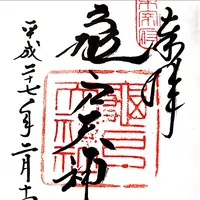 奉拝
亀戸天神
平成二十七年二月十